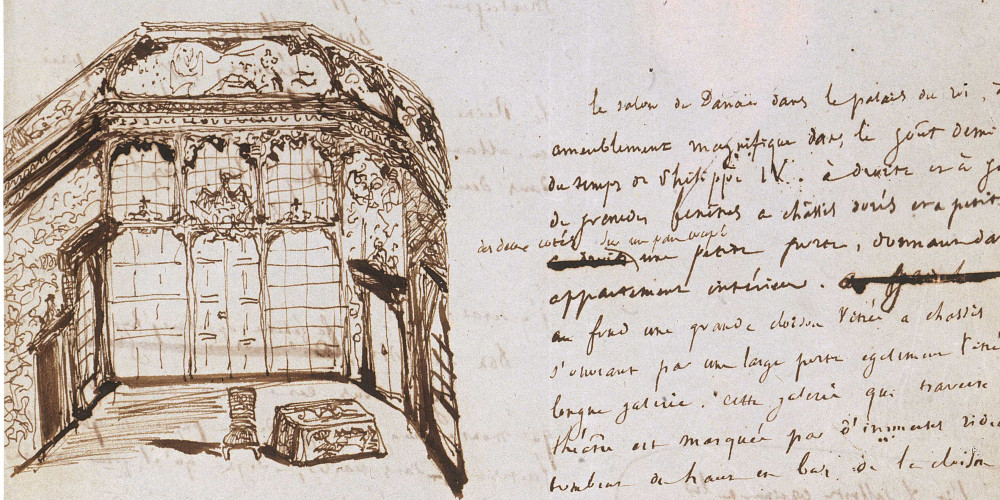 le salon de Danaé dans le palais du roi, à
ameublement magnifique dans le goût demi
du temps de Philippe IV. à droite et à ga
de grandes fenêtres a châssis dorés et a petits
des deux cotés sur un pan coupé
une petite porte, donnant da
appartement intérieur.
au fond une grande cloison vitrée a chassis
s'ouvrant par une large porte egalement vitrée
longue galerie. Cette galerie qui traverse
théâtre est masquée par d'immenses ridea
tombent du haut en bas de la cloison